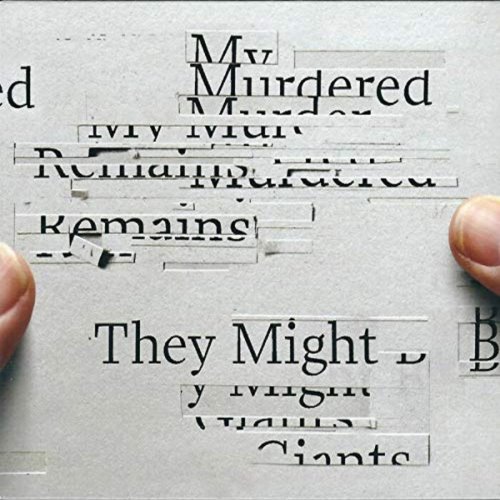 ed
My
Murdered
Murder
My Mur
Remains
Murdered
Remains
They Might B
B
y Might
Giants
Giants